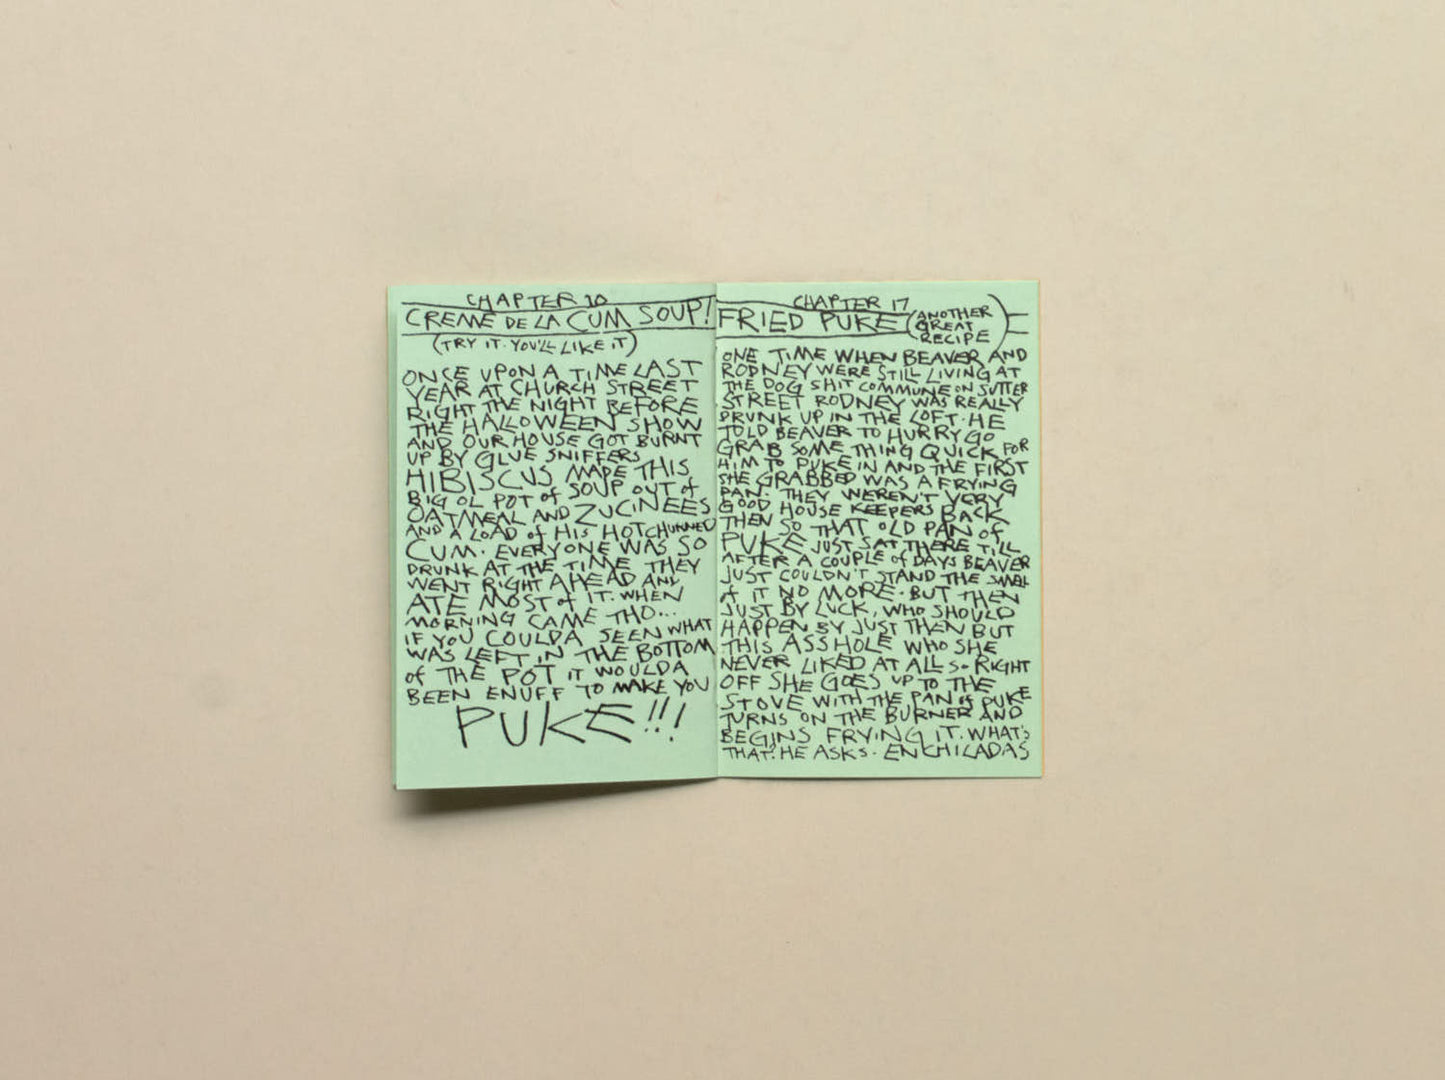 CHAPTER 10
CREME DE LA CUM SOUP!
(TRY IT. YOU'LL LIKE IT)
ONCE UPON A TIME LAST
YEAR AT CHURCH STREET
RIGHT THE NIGHT BEFORE
THE HALLOWEEN SHOW
AND OUR HOUSE GOT BURNT
UP BY GLUE SNIFFERS
HIBISCUS MADE THIS
BIG OL POT of SOUP OUT of
OATMEAL AND ZUCINEES
AND A LOAD of HIS HOT CHURNED
CUM. EVERYONE WAS SO
DRUNK AT THE TIME THEY
WENT RIGHT AHEAD AND
ATE MOST of IT. WHEN
MORNING CAME THO...
IF YOU COULDA SEEN WHAT
WAS LEFT IN THE BOTTOM
of THE POT IT WOULDA
BEEN ENUFF TO MAKE YOU
PUKE!!!
CHAPTER 17
FRIED PUKE (ANOTHER
GREAT
RECIPE)
ONE TIME WHEN BEAVER AND
RODNEY WERE STILL LIVING AT
THE DOG SHIT COMMUNE ON SUTTER
STREET RODNEY WAS REALLY
DRUNK UP IN THE LOFT. HE
TOLD BEAVER TO HURRY GO
GRAB SOME THING QUICK FOR
HIM TO PUKE IN AND THE FIRST
SHE GRABBED WAS A FRYING
PAN. THEY WEREN'T VERY
GOOD HOUSE KEEPERS BACK
THEN SO THAT OLD PAN of
PUKE JUST SAT THERE TILL
AFTER A COUPLE of DAYS BEAVER
JUST COULDN'T STAND THE SMELL
of IT NO MORE. BUT THEN
JUST BY LUCK, WHO SHOULD
HAPPEN BY JUST THEN BUT
THIS ASSHOLE WHO SHE
NEVER LIKED AT ALL SO RIGHT
OFF SHE GOES UP TO THE
STOVE WITH THE PAN of PUKE
TURNS ON THE BURNER AND
BEGINS FRYING IT. WHAT'S
THAT? HE ASKS. ENCHILADAS